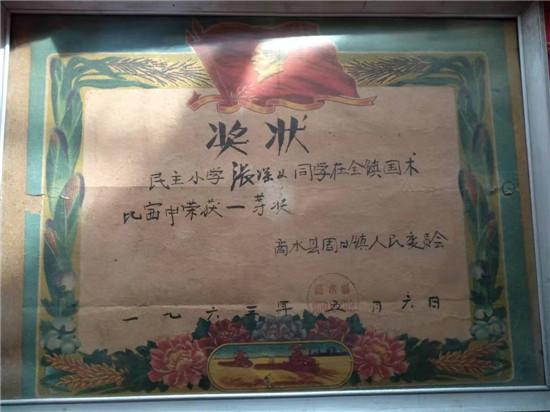 奖状
民主小学张 同学在全镇国术
比赛中荣获一等奖
商水县周口镇人民委员会
一九六三年五月六日